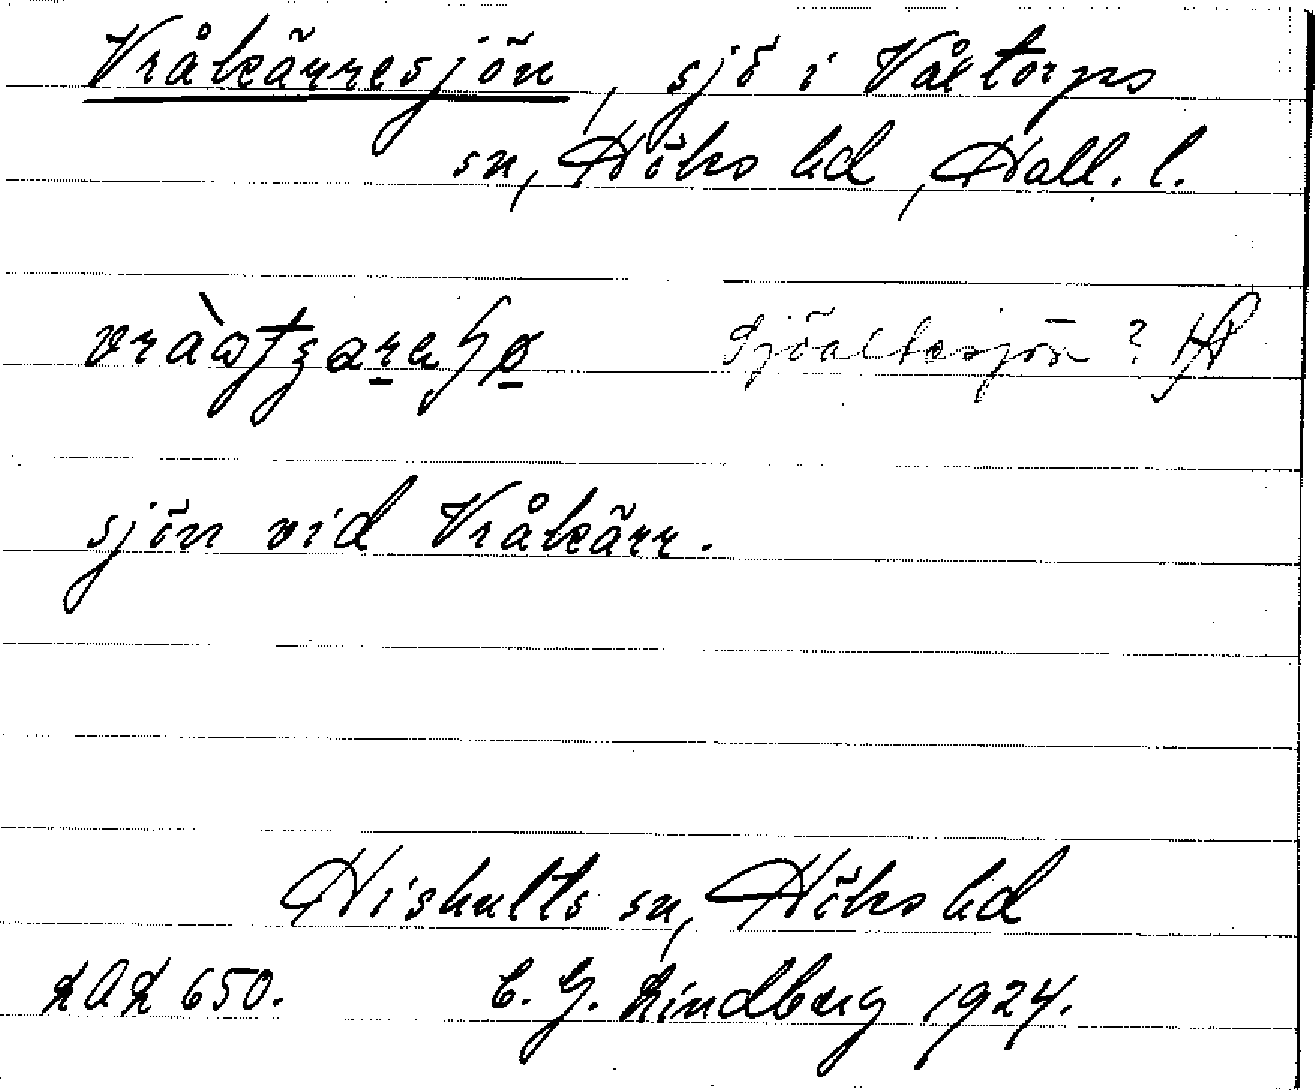 Vråkärresjön, sjö i Våxtorps
sn, Höks hd, Hall. l.
Sjöaltesjön?
sjön vid Vråkärr.
Hishults sn, Höks hd
LAL 650. C. G. Lindberg 1924.